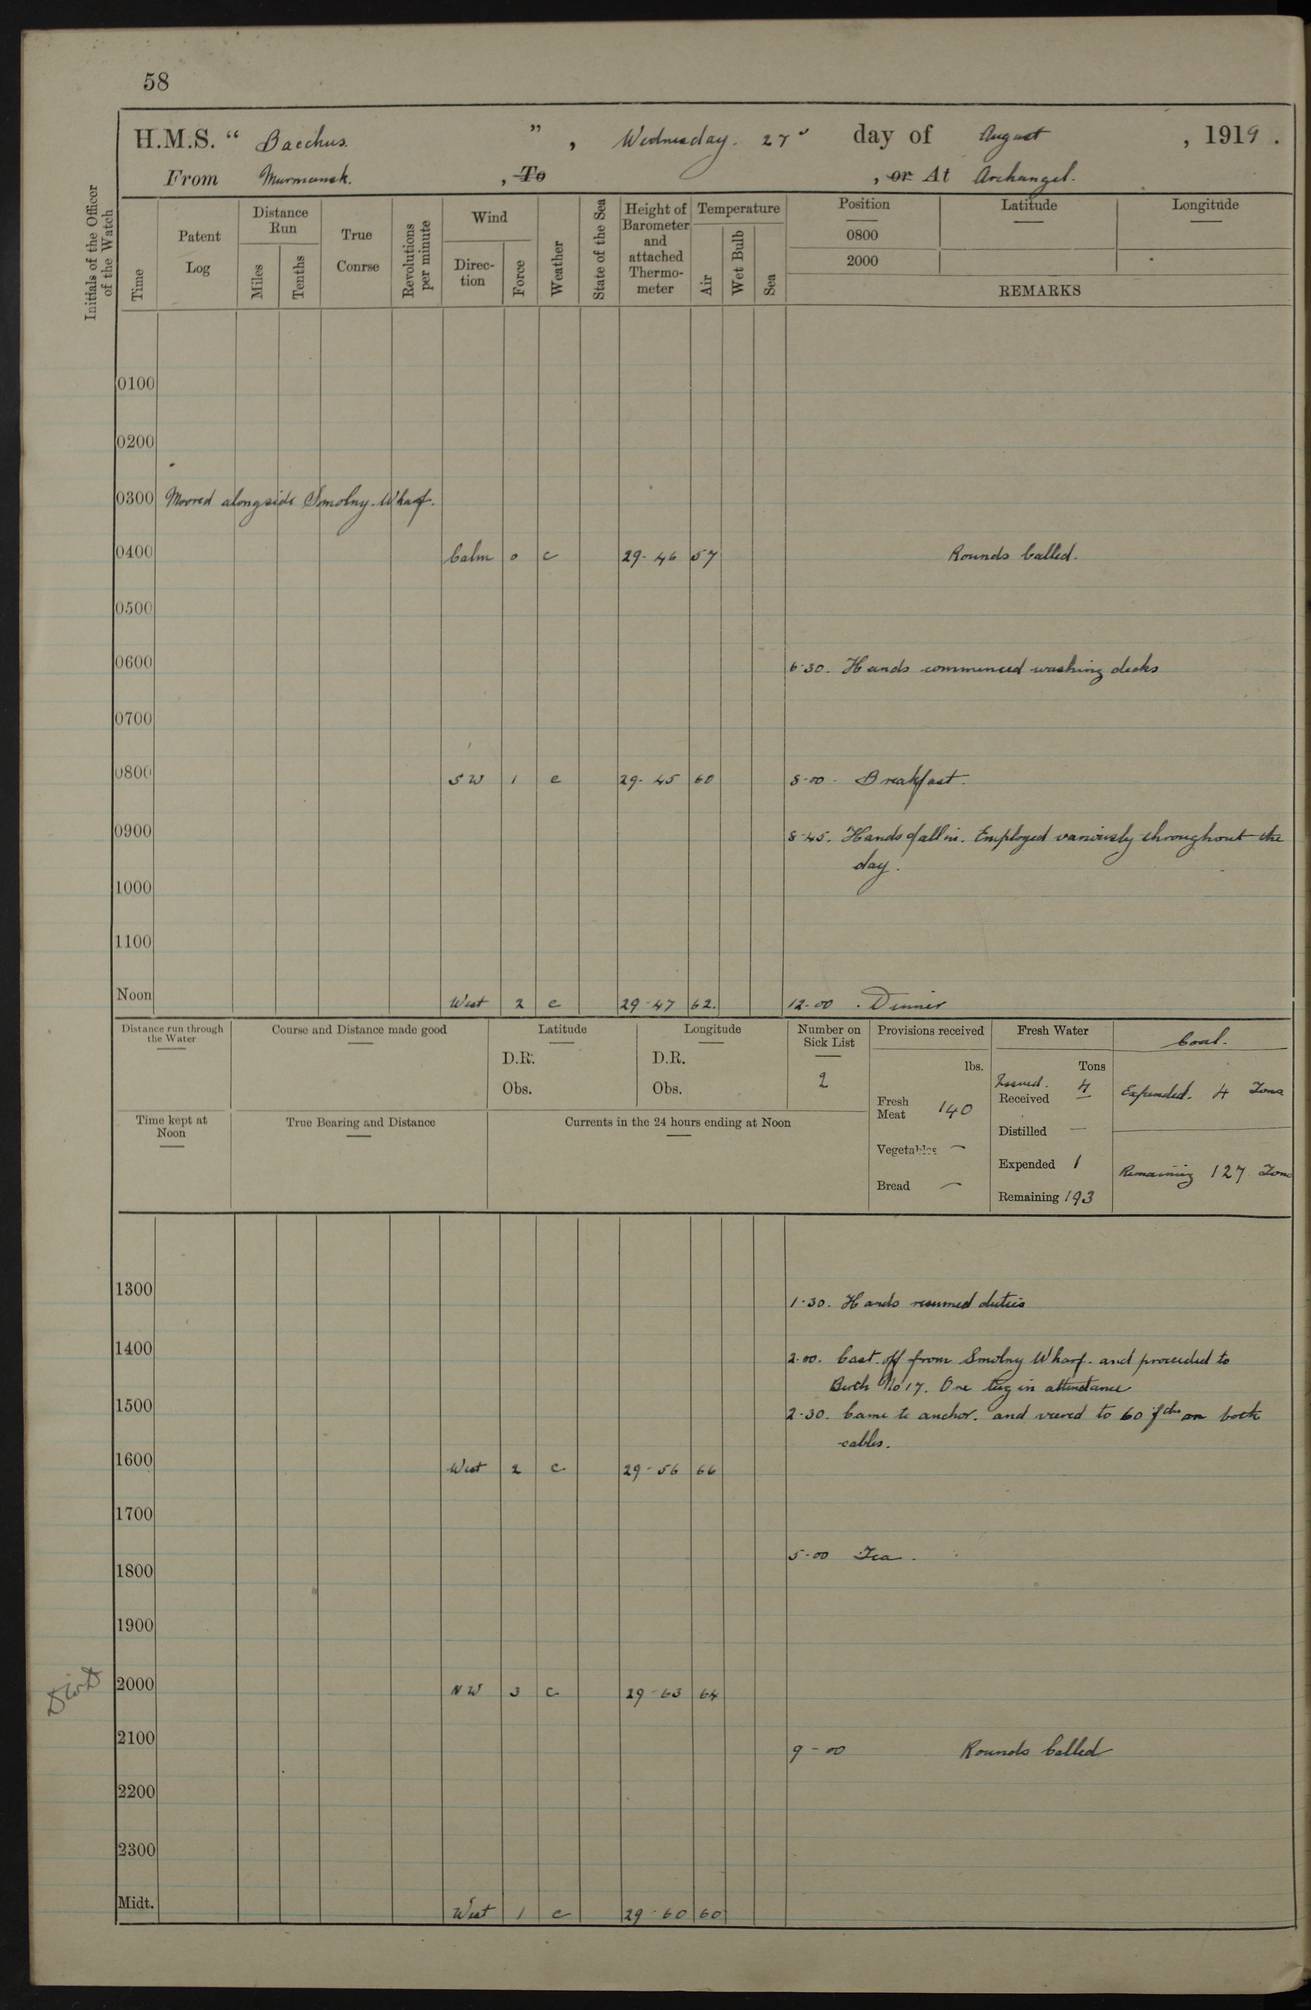 58
H.M.S. “ Bacchus. ” , Wednesday. 27" day of August , 1919 .
From Murmansk. , To , or At Archangel.
Initials of the Officer of the Watch
Time
Patent Log
Distance Run
Miles
Tenths
True Conrse
Revolutions per minute
Wind
Direc- tion
Force
Weather
State of the Sea
Height of Barometer and attached Thermo- meter
Temperature
Air
Wet Bulb
Sea
Position Latitude Longitude
0800
2000
REMARKS
0100
0200
0300 Moored alongside Smolny. Wharf.
0400 Calm 0 c 29-46 57 Rounds Called.
0500
0600 6-30. Hands commenced washing decks
0700
0800 SW 1 c 29-45 60 8-00. Breakfast.
0900 8-45. Hands fall in. Employed variously throughout the
day.
1000
1100
Noon West 2 c 29-47 62. 12-00 . Dinner
Distance run through the Water
Course and Distance made good
Latitude
D.R.
Obs.
Longitude
D.R.
Obs.
Number on Sick List
2
Provisions received
lbs.
Fresh Meat 140
Vegetables —
Bread —
Fresh Water
Tons
Issued. 4
Received —
Distilled —
Expended 1
Remaining 193
Coal.
Expended. 4 Tons
Remaining 127 Tons
Time kept at Noon
True Bearing and Distance
Currents in the 24 hours ending at Noon
1300 1-30. Hands resumed duties
1400 2-00. Cast off from Smolny Wharf. and proceeded to
Berth No 17. One tug in attendance
1500 2-30. Came to anchor. and veered to 60 fths on both
cables.
1600 West 2 c 29-56 66
1700
5-00 Tea.
1800
1900
2000 NW 3 c 29-63 64
2100 9-00 Rounds Called
2200
2300
Midt. West 1 c 29-60 60